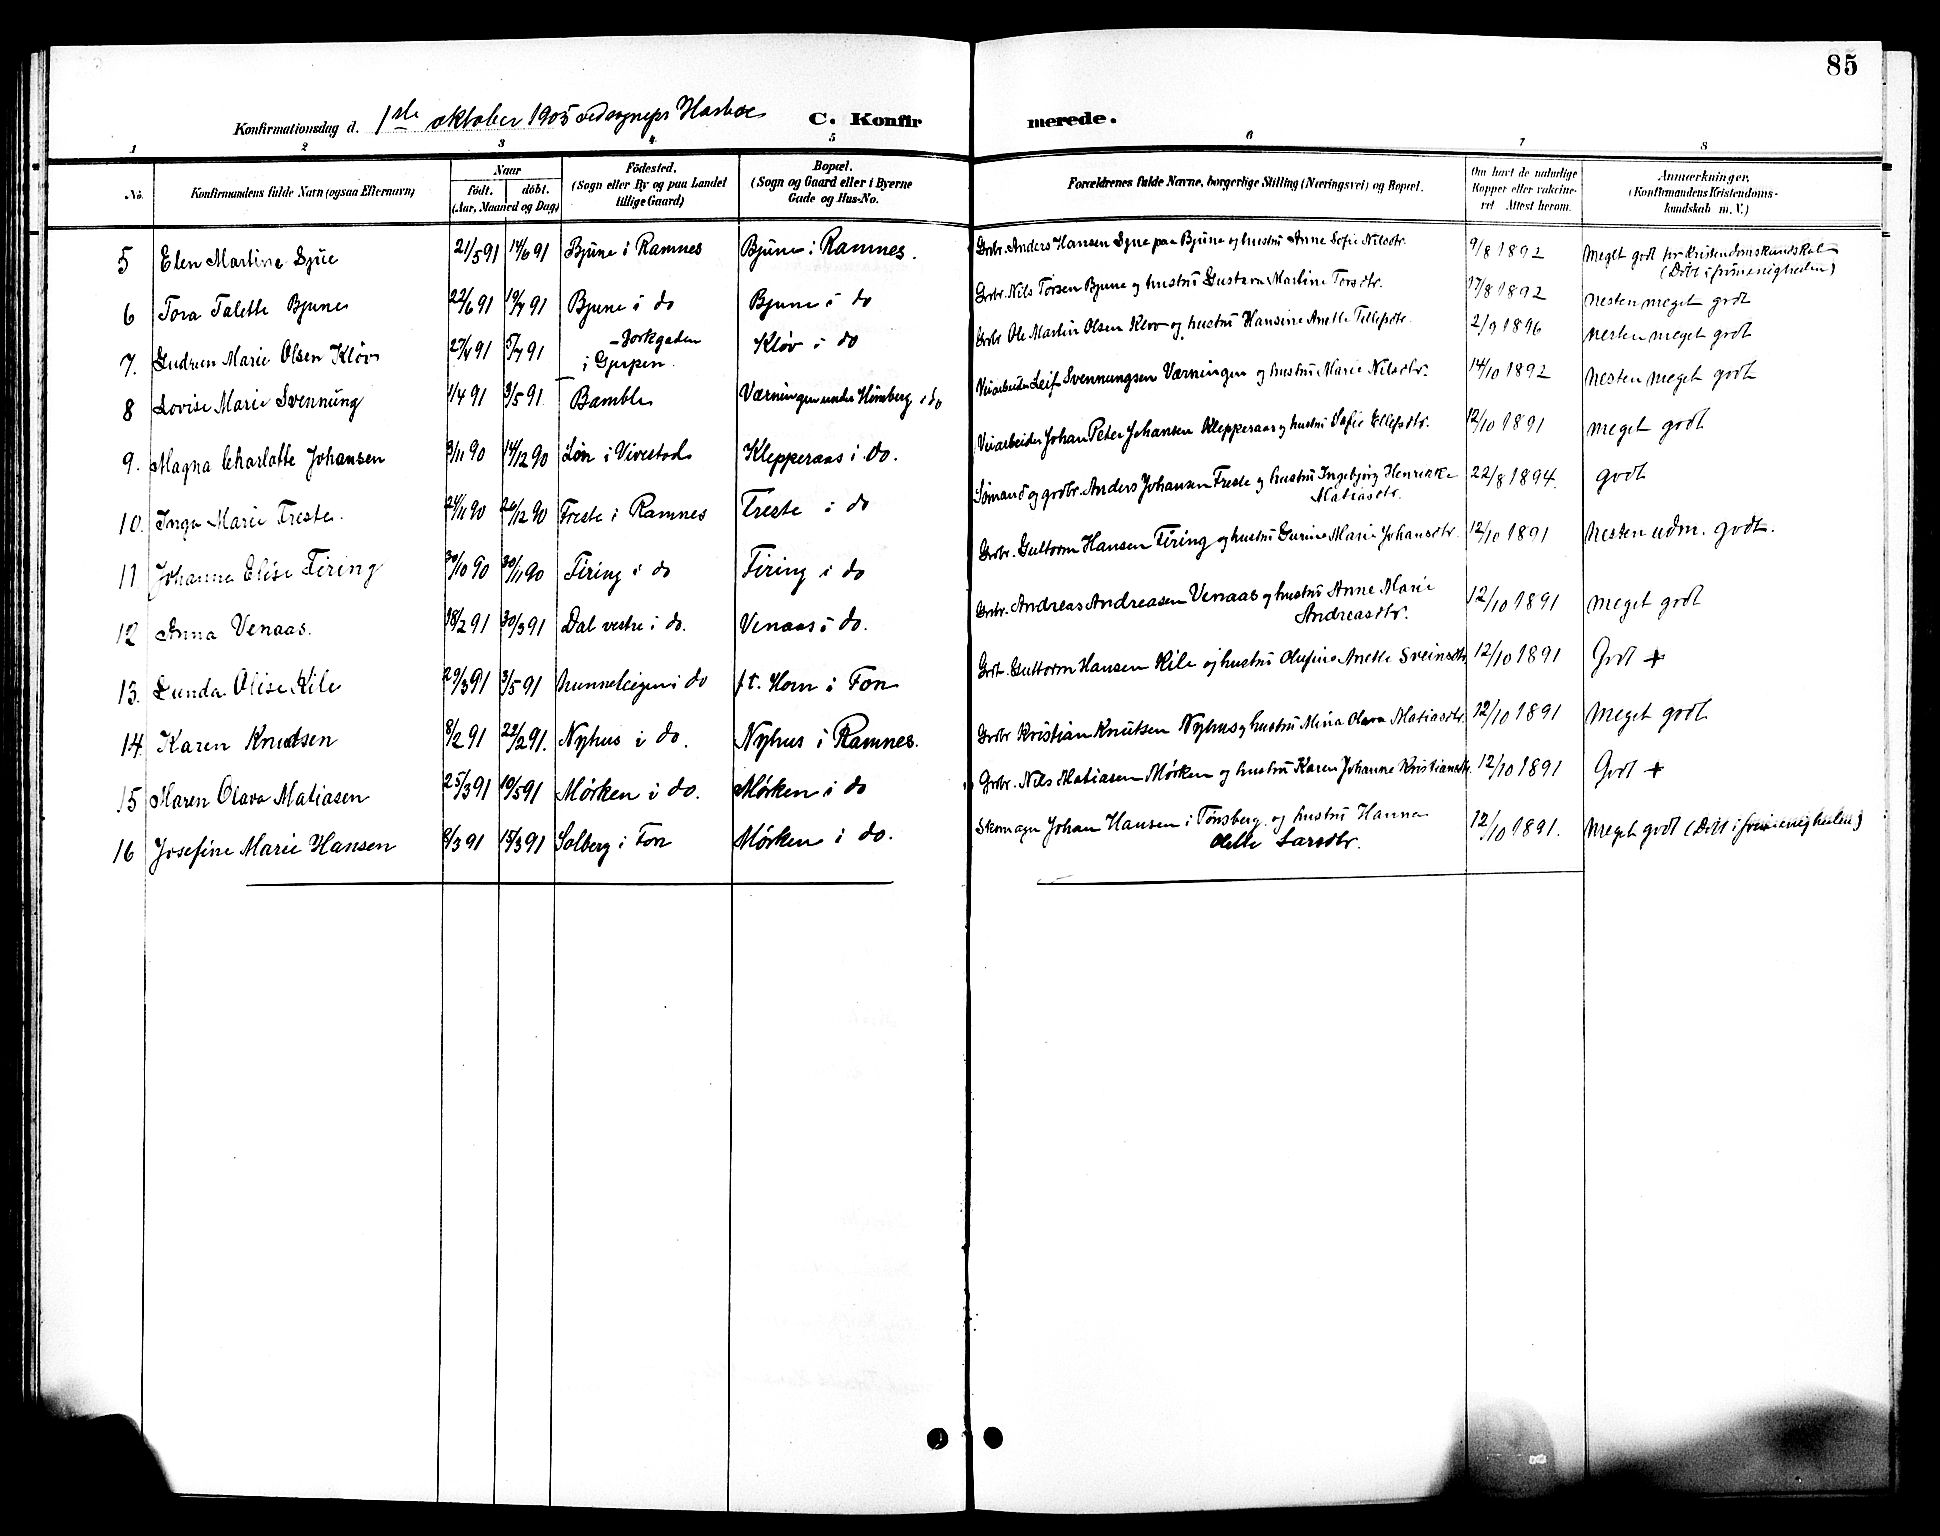 85
Konfirmationsdag d. 1ste oktober 1905 Harboe C. Konfir merede.
1 2 3 4 5 6 7 8
No. Konfirmandens fulde Navn (ogsaa Efternavn) Naar født. døbt. (Aar, Maaned og Dag) Fødested. (Sogn eller By og paa Landet tillige Gaard) Bopæl. (Sogn og Gaard eller i Byerne Gade og Hus-No. Forældrenes fulde Navne, borgerlige Stilling (Næringsvei) og Bopæl. Om havt de naturlige Kopper eller vakcineret. Attest herom. Anmærkninger. (Konfirmandens Kristendomskundskab m. V.)
5 Elen Martine Sjue 21/5 91 14/6 91 Bjune i Ramnes Bjune i Ramnes. Grbr. Anders Hansen Sjue paa Bjune og hustru Anne Sofie Nilsdtr. 9/8 1892 Meget godt for Kristendomskundskab
(Døbt i frimenigheden)
6 Tora Talette Bjune 22/6 91 19/7 91 Bjune i do Bjune i do Grbr. Nils Torsen Bjune og hustru Gustava Martine Torsdtr. 17/8 1892 nesten meget godt
7. Gudrun Marie Olsen Kløv 27/4 91 5/7 91 i Gjerpen. Kløv i do Grbr. Ole Martin Olsen Kløv og hustru Hansine Anette Tellefsdtr. 2/9 1896 nesten meget godt
8 Lovise Marie Svennung 1/4 91 3/5 91 Bamble Værningen under Himberg i do Veiarbeider Leif Svennungsen Værningen og hustru Marie Nilsdtr. 14/10 1892 nesten meget godt
9. Magna Charlotte Johansen 3/11 90 14/12 90 Løn i Vivestad Klepperaas i do. Veiarbeider Johan Peter Johansen Klepperaas og hustru Sofie Ellefsdtr. 12/10 1891 meget godt
10. Inga Marie Freste. 24/11 90 26/12 90 Freste i Ramnes Freste i do Sømand og grdbr. Anders Johansen Freste og hustru Ingebjørg Henrikke
Matiasdtr. 22/8 1894. godt
11 Johanne Elise Firing 30/10 90 30/11 90 Firing i do Firing i do Grbr. Guttorm Hansen Firing og hustru Gurine Marie Johansdtr. 12/10 1891 nesten udm. godt.
12 Anna Venaas. 18/2 91 30/3 91 Dal vestre i do. Venaas i do. Grbr. Andreas Andreasen Venaas og hustru Anne Marie
Andreasdtr. 12/10 1891 meget godt
13. Gunda Olise Kile 29/3 91 3/5 91 i do f. t. Horn i Fon Grbr. Guttorm Hansen Kile og hustru Olufine Anette Sveinsdtr. 12/10 1891 Godt +
14. Karen Knudsen 8/2 91 22/2 91. Nyhus i do. Nyhus i Ramnes. Grbr Kristian Knutsen Nyhus og hustru Mina Olava Matiasdtr. 12/10 1891 Meget godt
15 Maren Olava Matiasen 25/3 91 10/5 91 Mørken i do. Mørken i do Grbr. Nils Matiasen Mørken og hustru Karen Johanne Kristiansdtr. 12/10 1891 Godt +
16 Josefine Marie Hansen 8/3 91 15/3 91 Solberg i Fon Mørken i do. Skomager Johan Hansen i Tønsberg. og hustru Hanna
Olette Larsdtr. 12/10 1891. Meget godt (Døbt i frimenigheden)